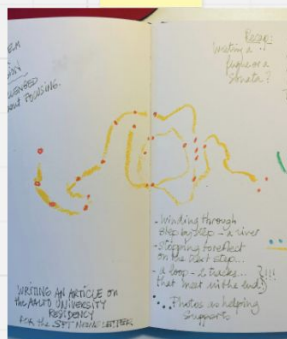 FOCUSING.
WRITING AN ARTICLE ON
THE AALTO UNIVERSITY
RESIDENCY
FOR THE
Writing a
fugue or a
Sonata?
- Winding through
step by step - a river
- Stepping to reflect
on the next step...
- a loop - 2 tracks...
that meet in the end
Photos as helping
supports